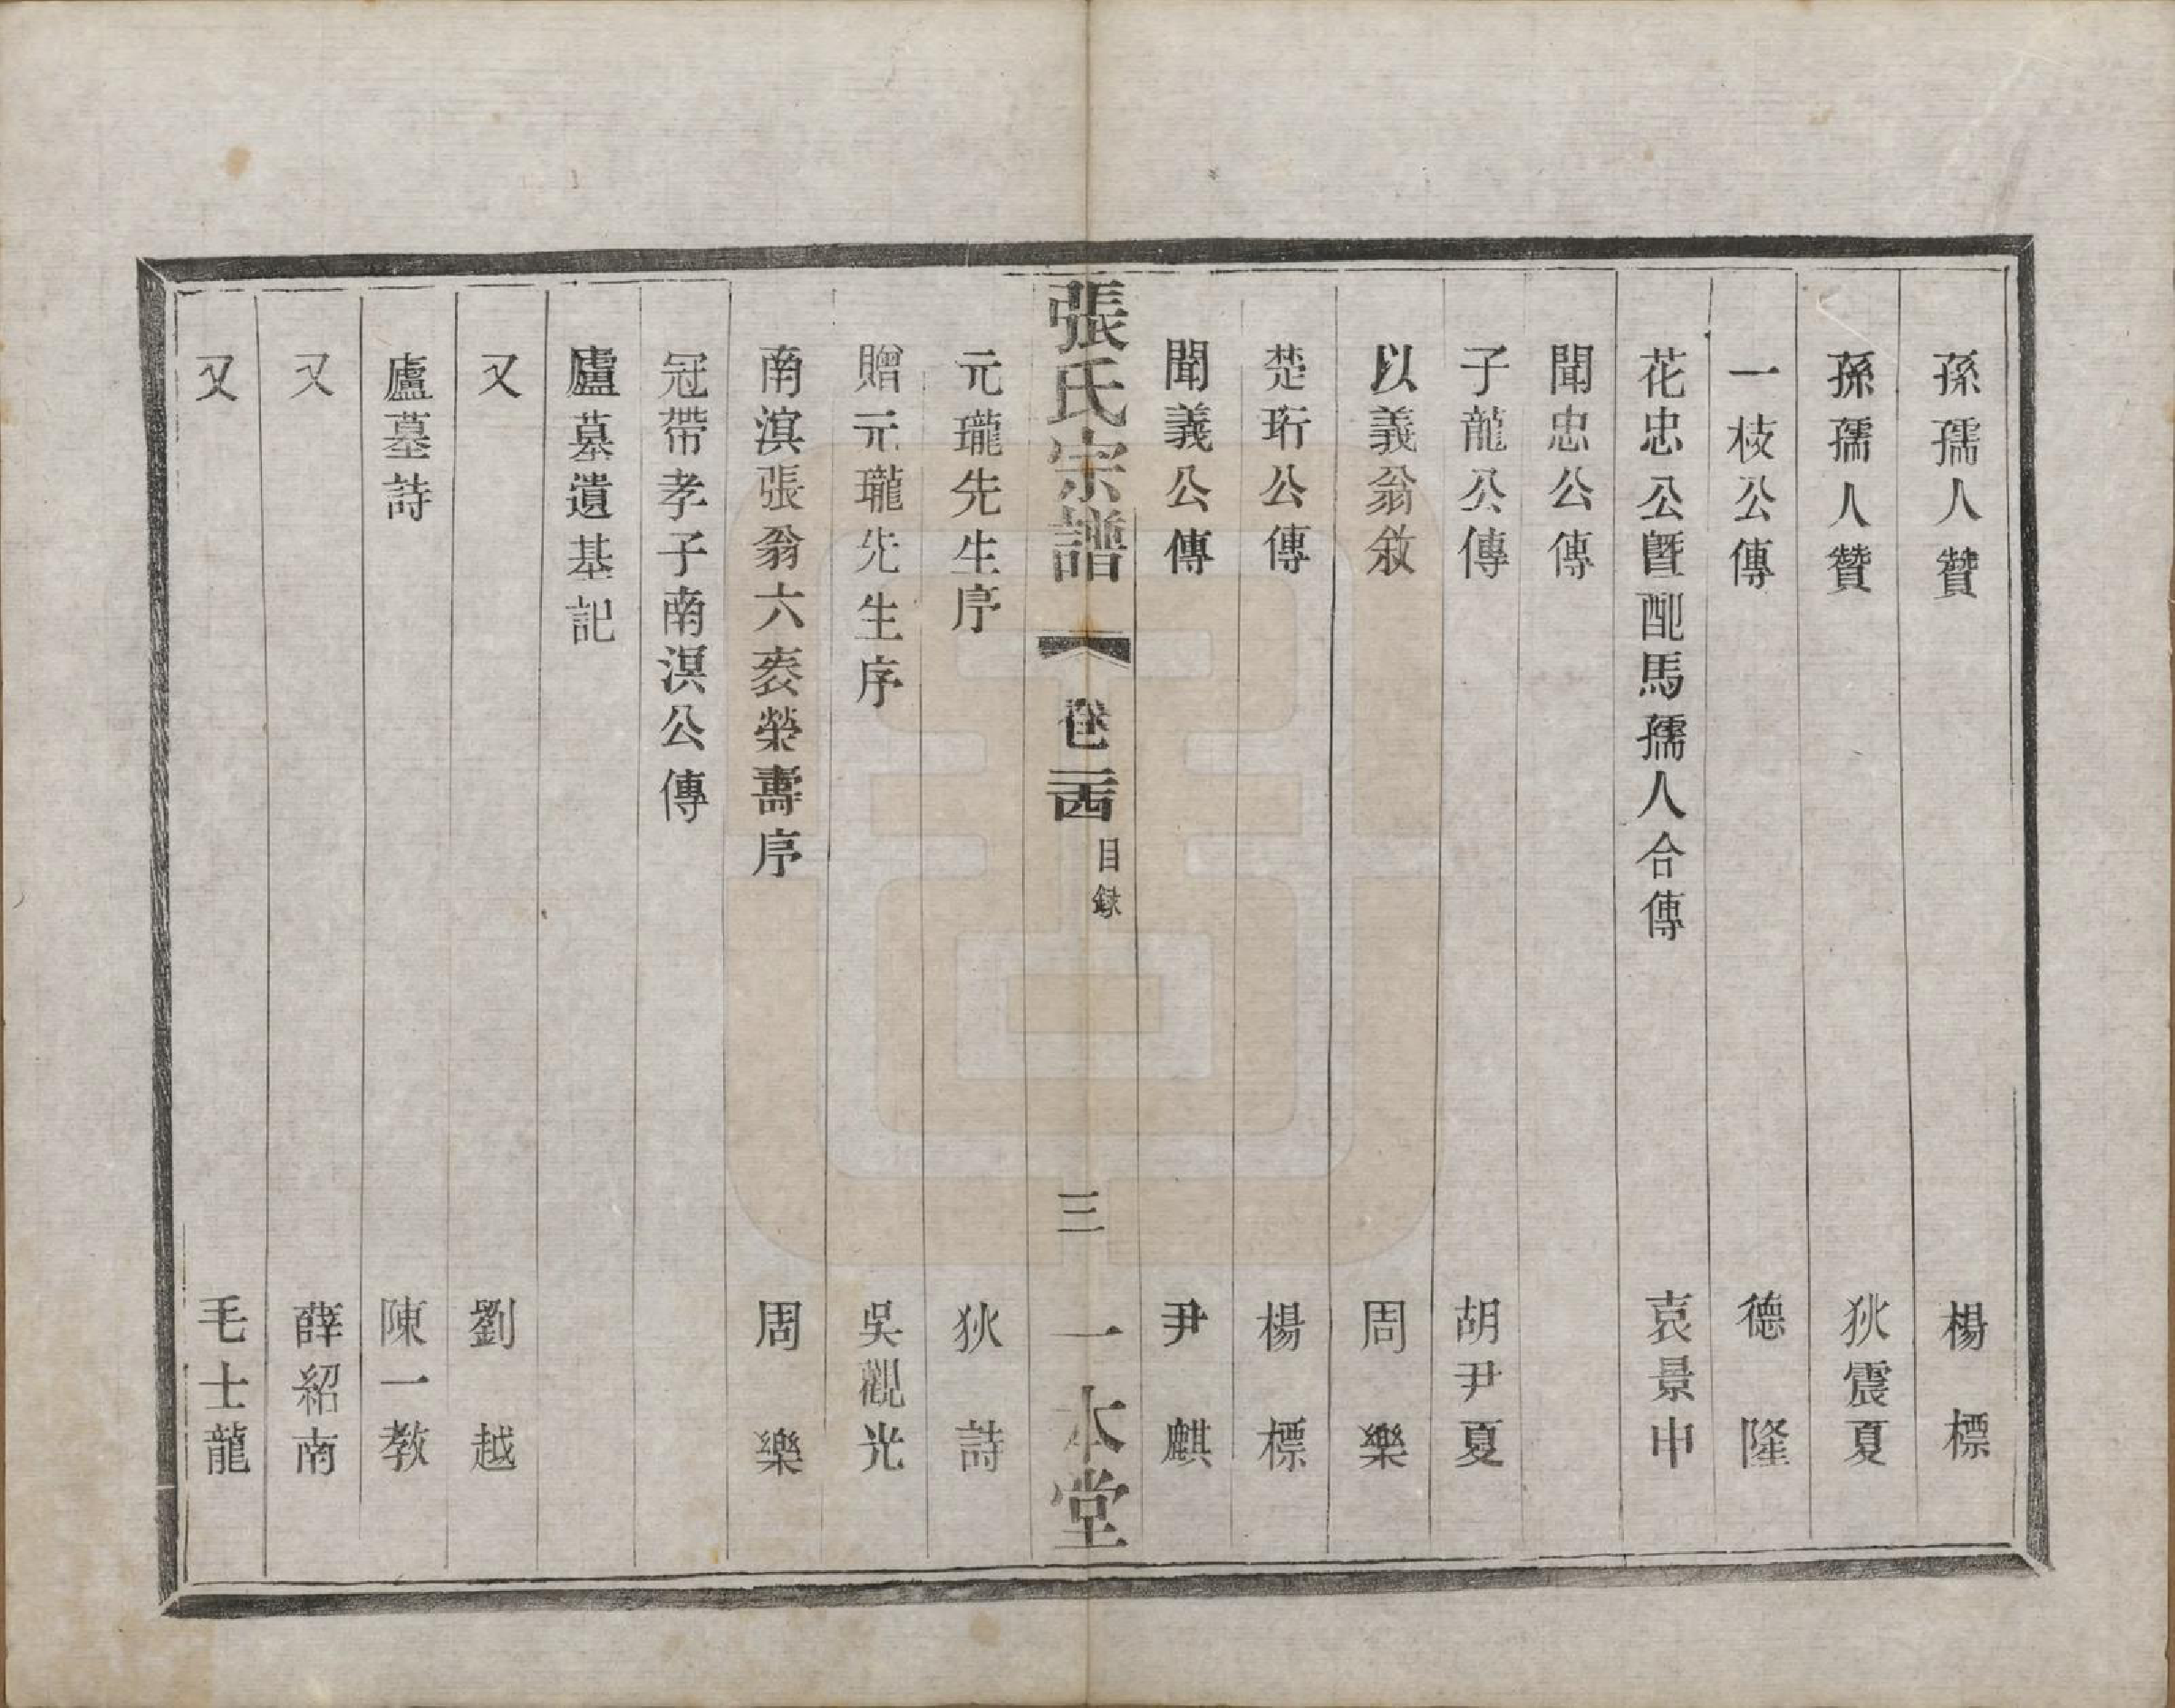 孫孺人贊　楊標
孫孺人贊　狄震夏
一枝公傳　德隆
花忠公暨配馬孺人合傳　袁景申
聞忠公傳
子龍公傳　胡尹夏
以義翁敘　周樂
楚珩公傳　楊標
聞義公傳　尹麒
張氏宗譜　卷二十四　目錄　三　一本堂
元瓏先生序　狄詩
贈元瓏先生序　吳觀光
南溟張翁六袠榮壽序　周樂
冠帶孝子南溟公傳
廬墓遺基記
又　劉越
廬墓詩　陳一教
又　薛紹南
又　毛士龍